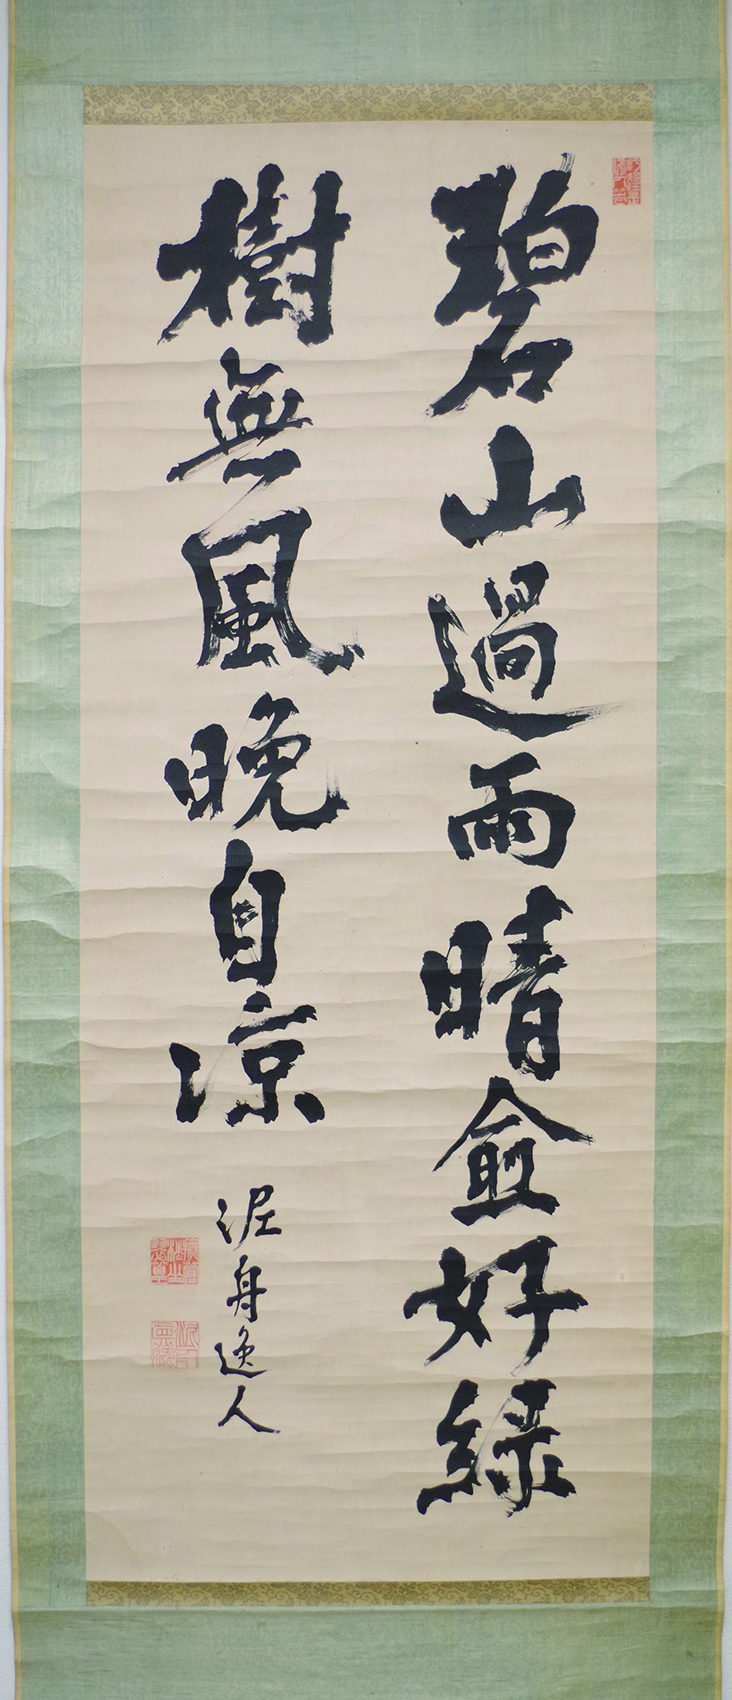 碧山過雨晴僉好綠
樹無風晩自凉
泥舟逸人